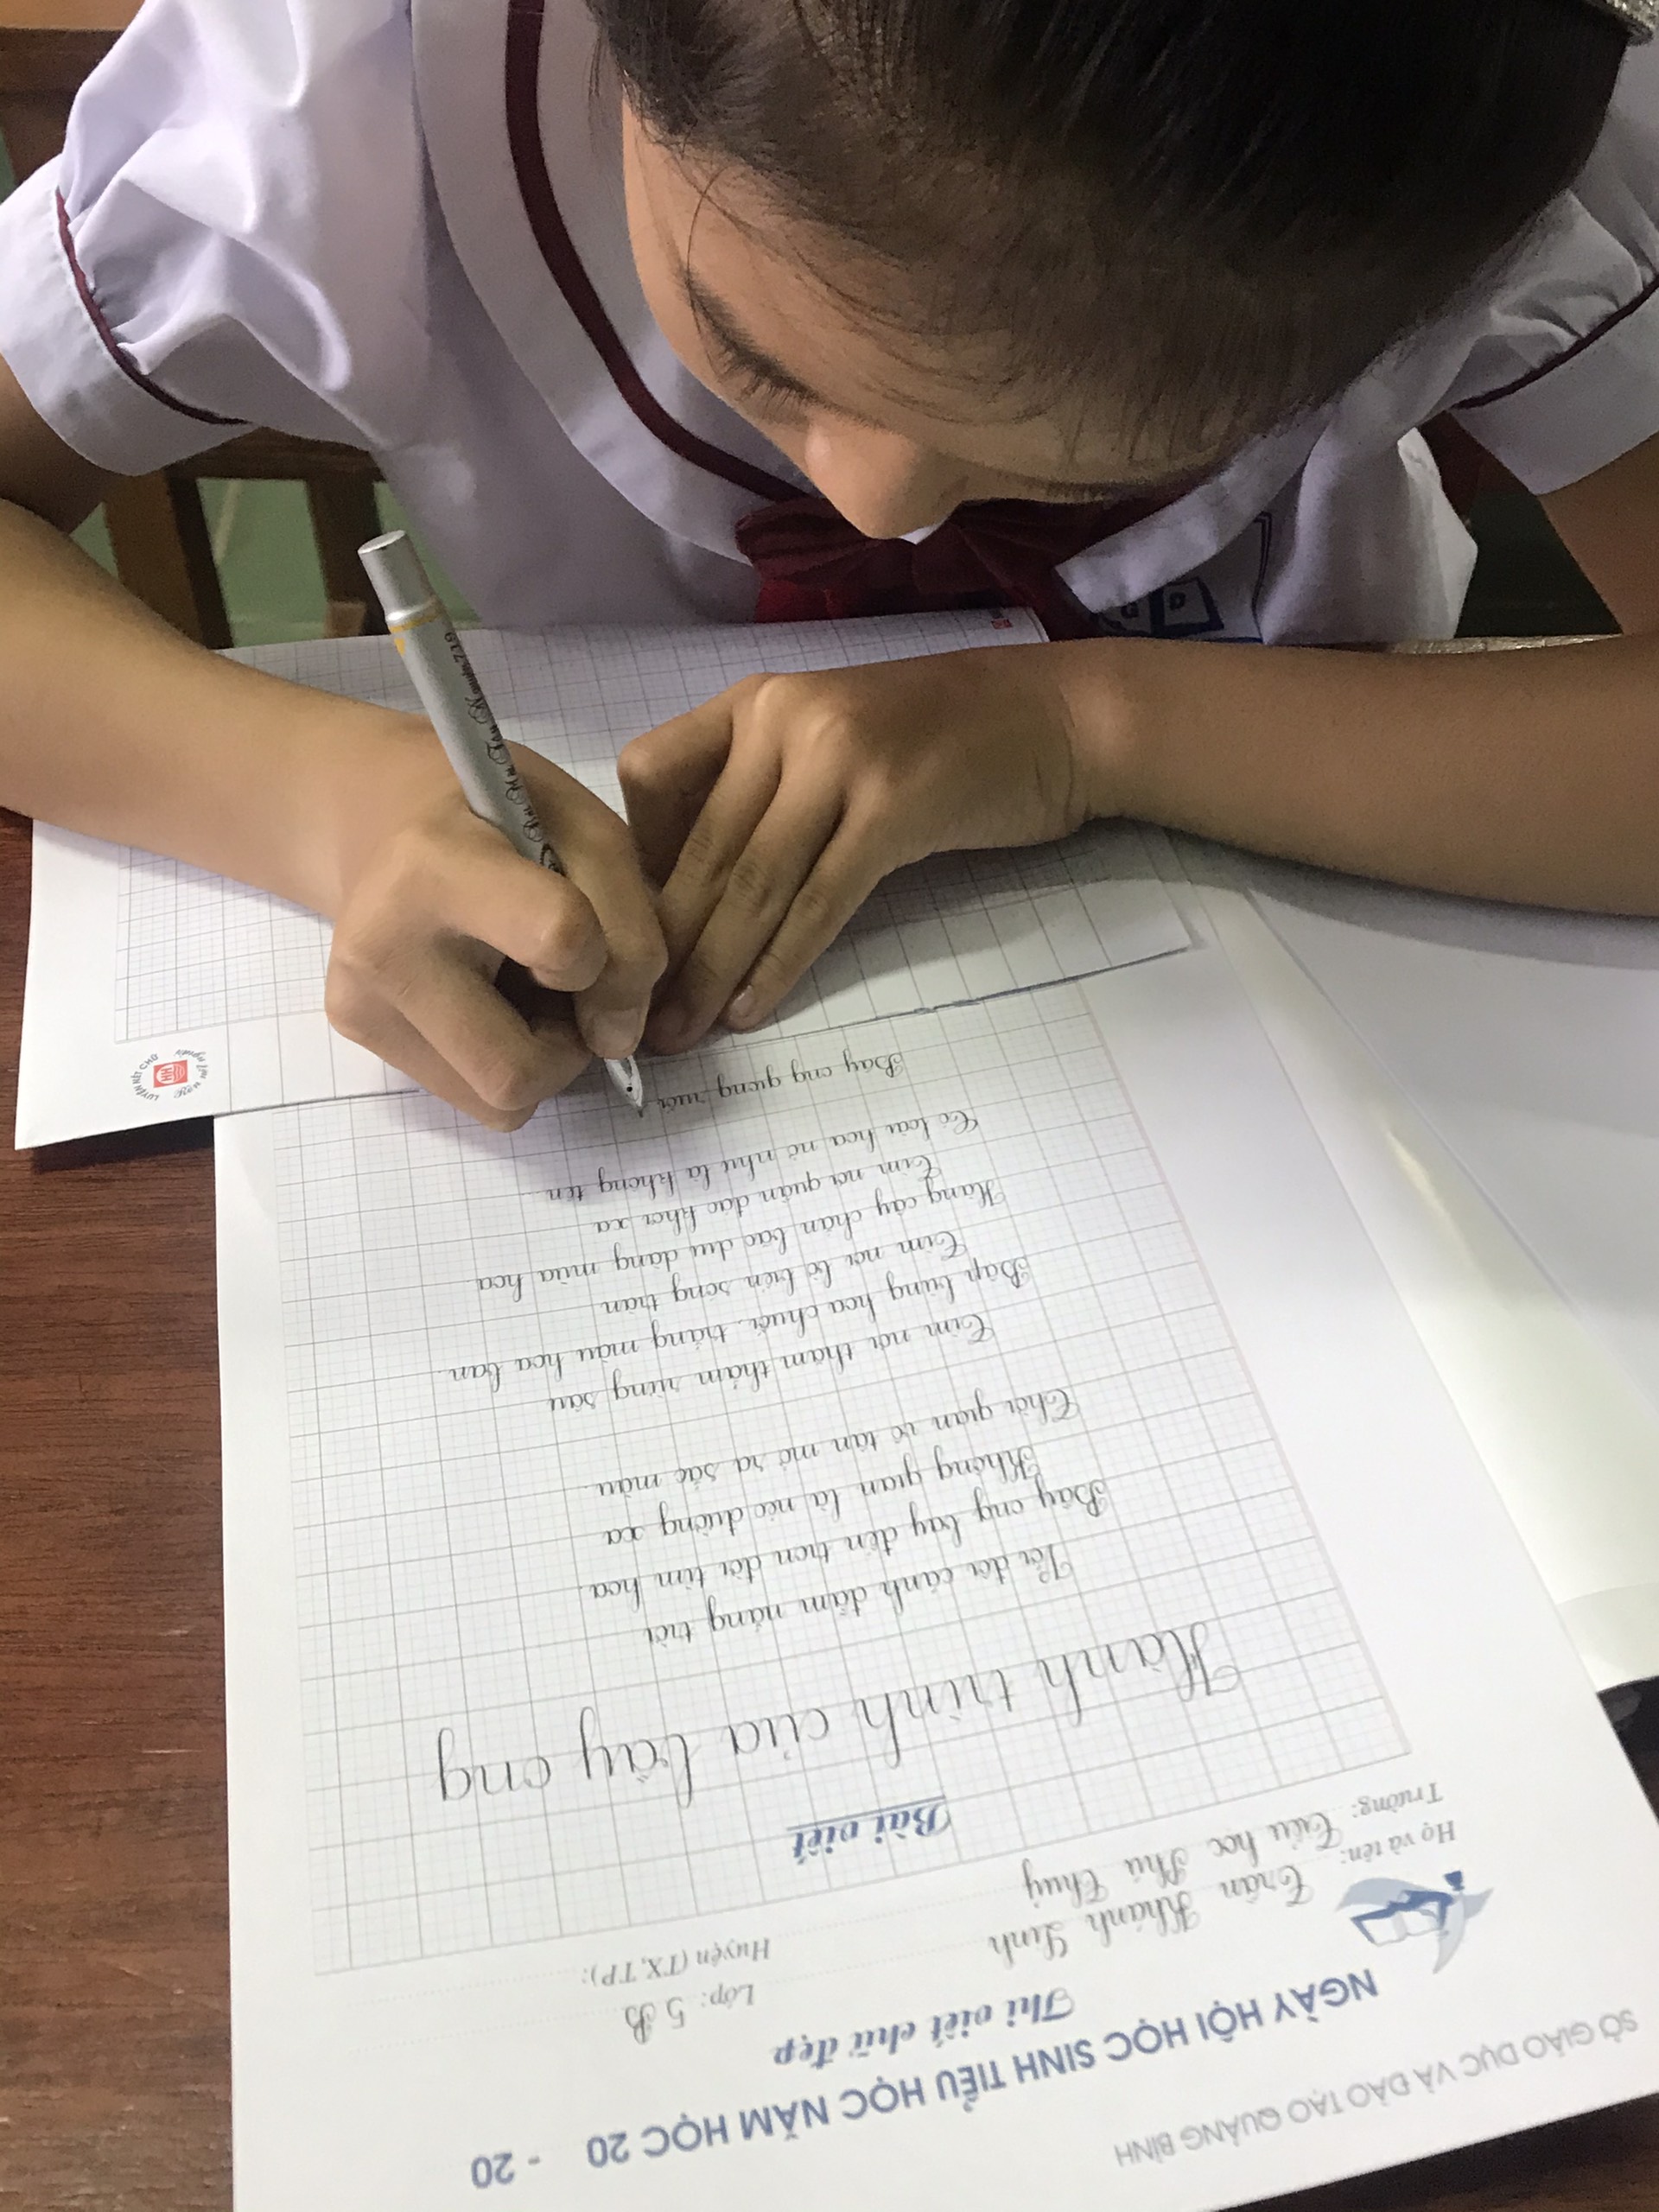 SỞ GIÁO DỤC VÀ ĐÀO TẠO QUẢNG BÌNH
NGÀY HỘI HỌC SINH TIỂU HỌC NĂM HỌC 20 - 20
Thi viết chữ đẹp
Họ và tên: Trần Khánh Linh Lớp: 5B
Trường: Tiểu học Phú Thuỷ Huyện (TX,TP):
Bài viết
Hành trình của bầy ong
Với đôi cánh đẫm nắng trời
Bầy ong bay đến trọn đời tìm hoa.
Không gian là nẻo đường xa
Thời gian vô tận mở ra sắc màu.
Tìm nơi thăm thẳm rừng sâu
Bập bùng hoa chuối, trắng màu hoa ban.
Tìm nơi bờ biển sóng tràn
Hàng cây chắn bão dịu dàng mùa hoa.
Tìm nơi quần đảo khơi xa
Có loài hoa nở như là không tên...
Bầy ong giong ruổi
LUYỆN NÉT CHỮ
Rèn nết người